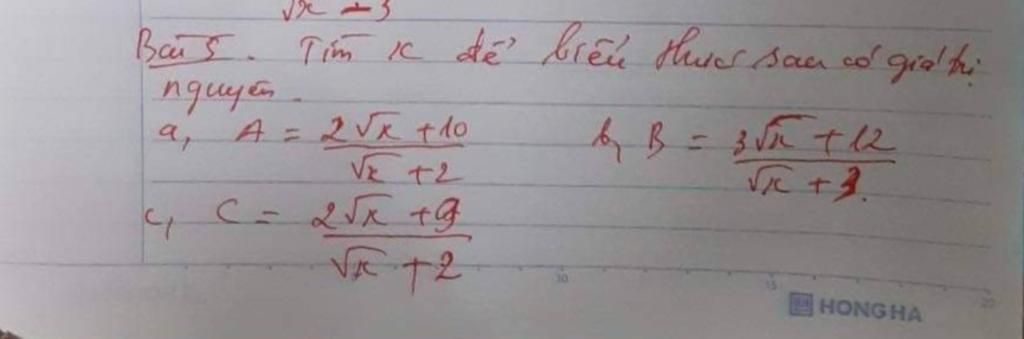 √x - 3
Bài 5. Tìm x để biểu thức sau có giá trị
nguyên.
a, A = (2√x + 10)/(√x + 2) b, B = (3√x + 12)/(√x + 3)
c, C = (2√x + 9)/(√x + 2)
10 15 20
HONG HA